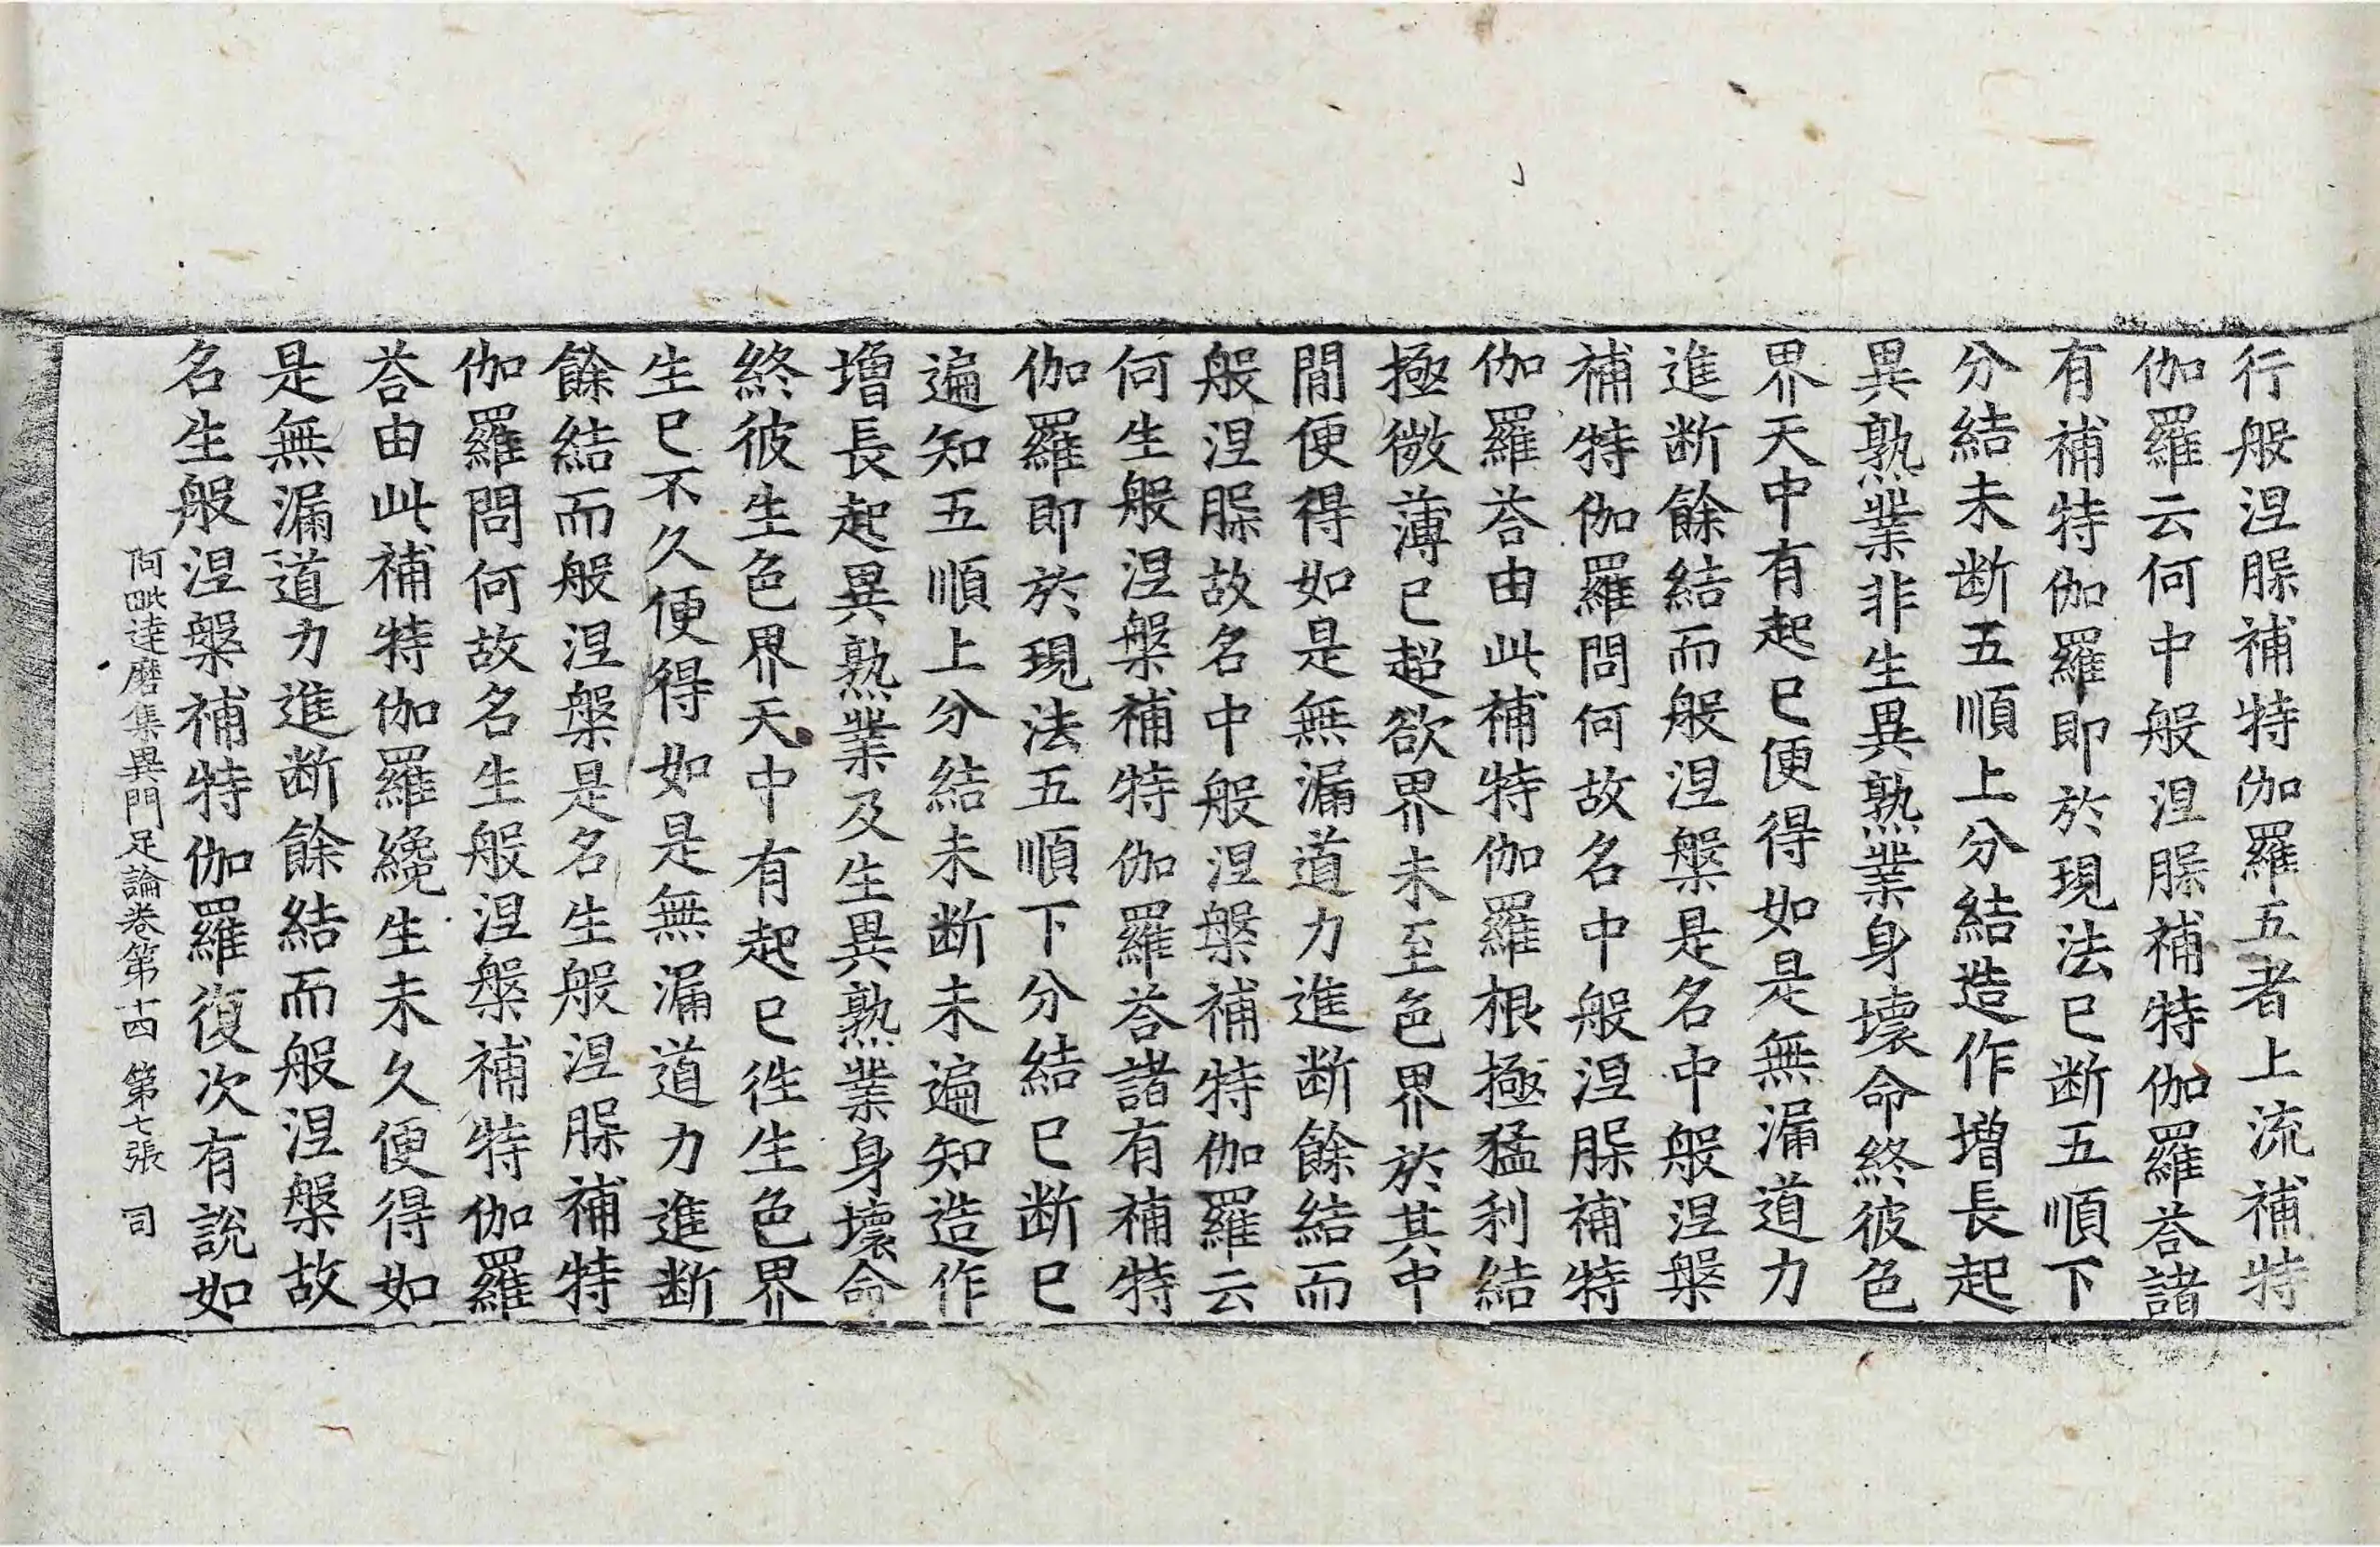 行般涅槃補特伽羅五者上流補特
伽羅云何中般涅槃補特伽羅荅諸
有補特伽羅即於現法已断五順下
分結未断五順上分結造作增長起
異熟業非生異熟業身壞命終彼色
界天中有起已便得如是無漏道力
進断餘結而般涅槃是名中般涅槃
補特伽羅問何故名中般涅槃補特
伽羅荅由此補特伽羅根極猛利結
極微薄已超欲界未至色界於其中
閒便得如是無漏道力進断餘結而
般涅槃故名中般涅槃補特伽羅云
何生般涅槃補特伽羅荅諸有補特
伽羅即於現法五順下分結已断已
遍知五順上分結未断未遍知造作
增長起異熟業及生異熟業身壞命
終彼生色界天中有起已徃生色界
生已不久便得如是無漏道力進断
餘結而般涅槃是名生般涅槃補特
伽羅問何故名生般涅槃補特伽羅
荅由此補特伽羅纔生未久便得如
是無漏道力進断餘結而般涅槃故
名生般涅槃補特伽羅復次有說如
阿毗達磨集異門足論卷第十四 第七張 司